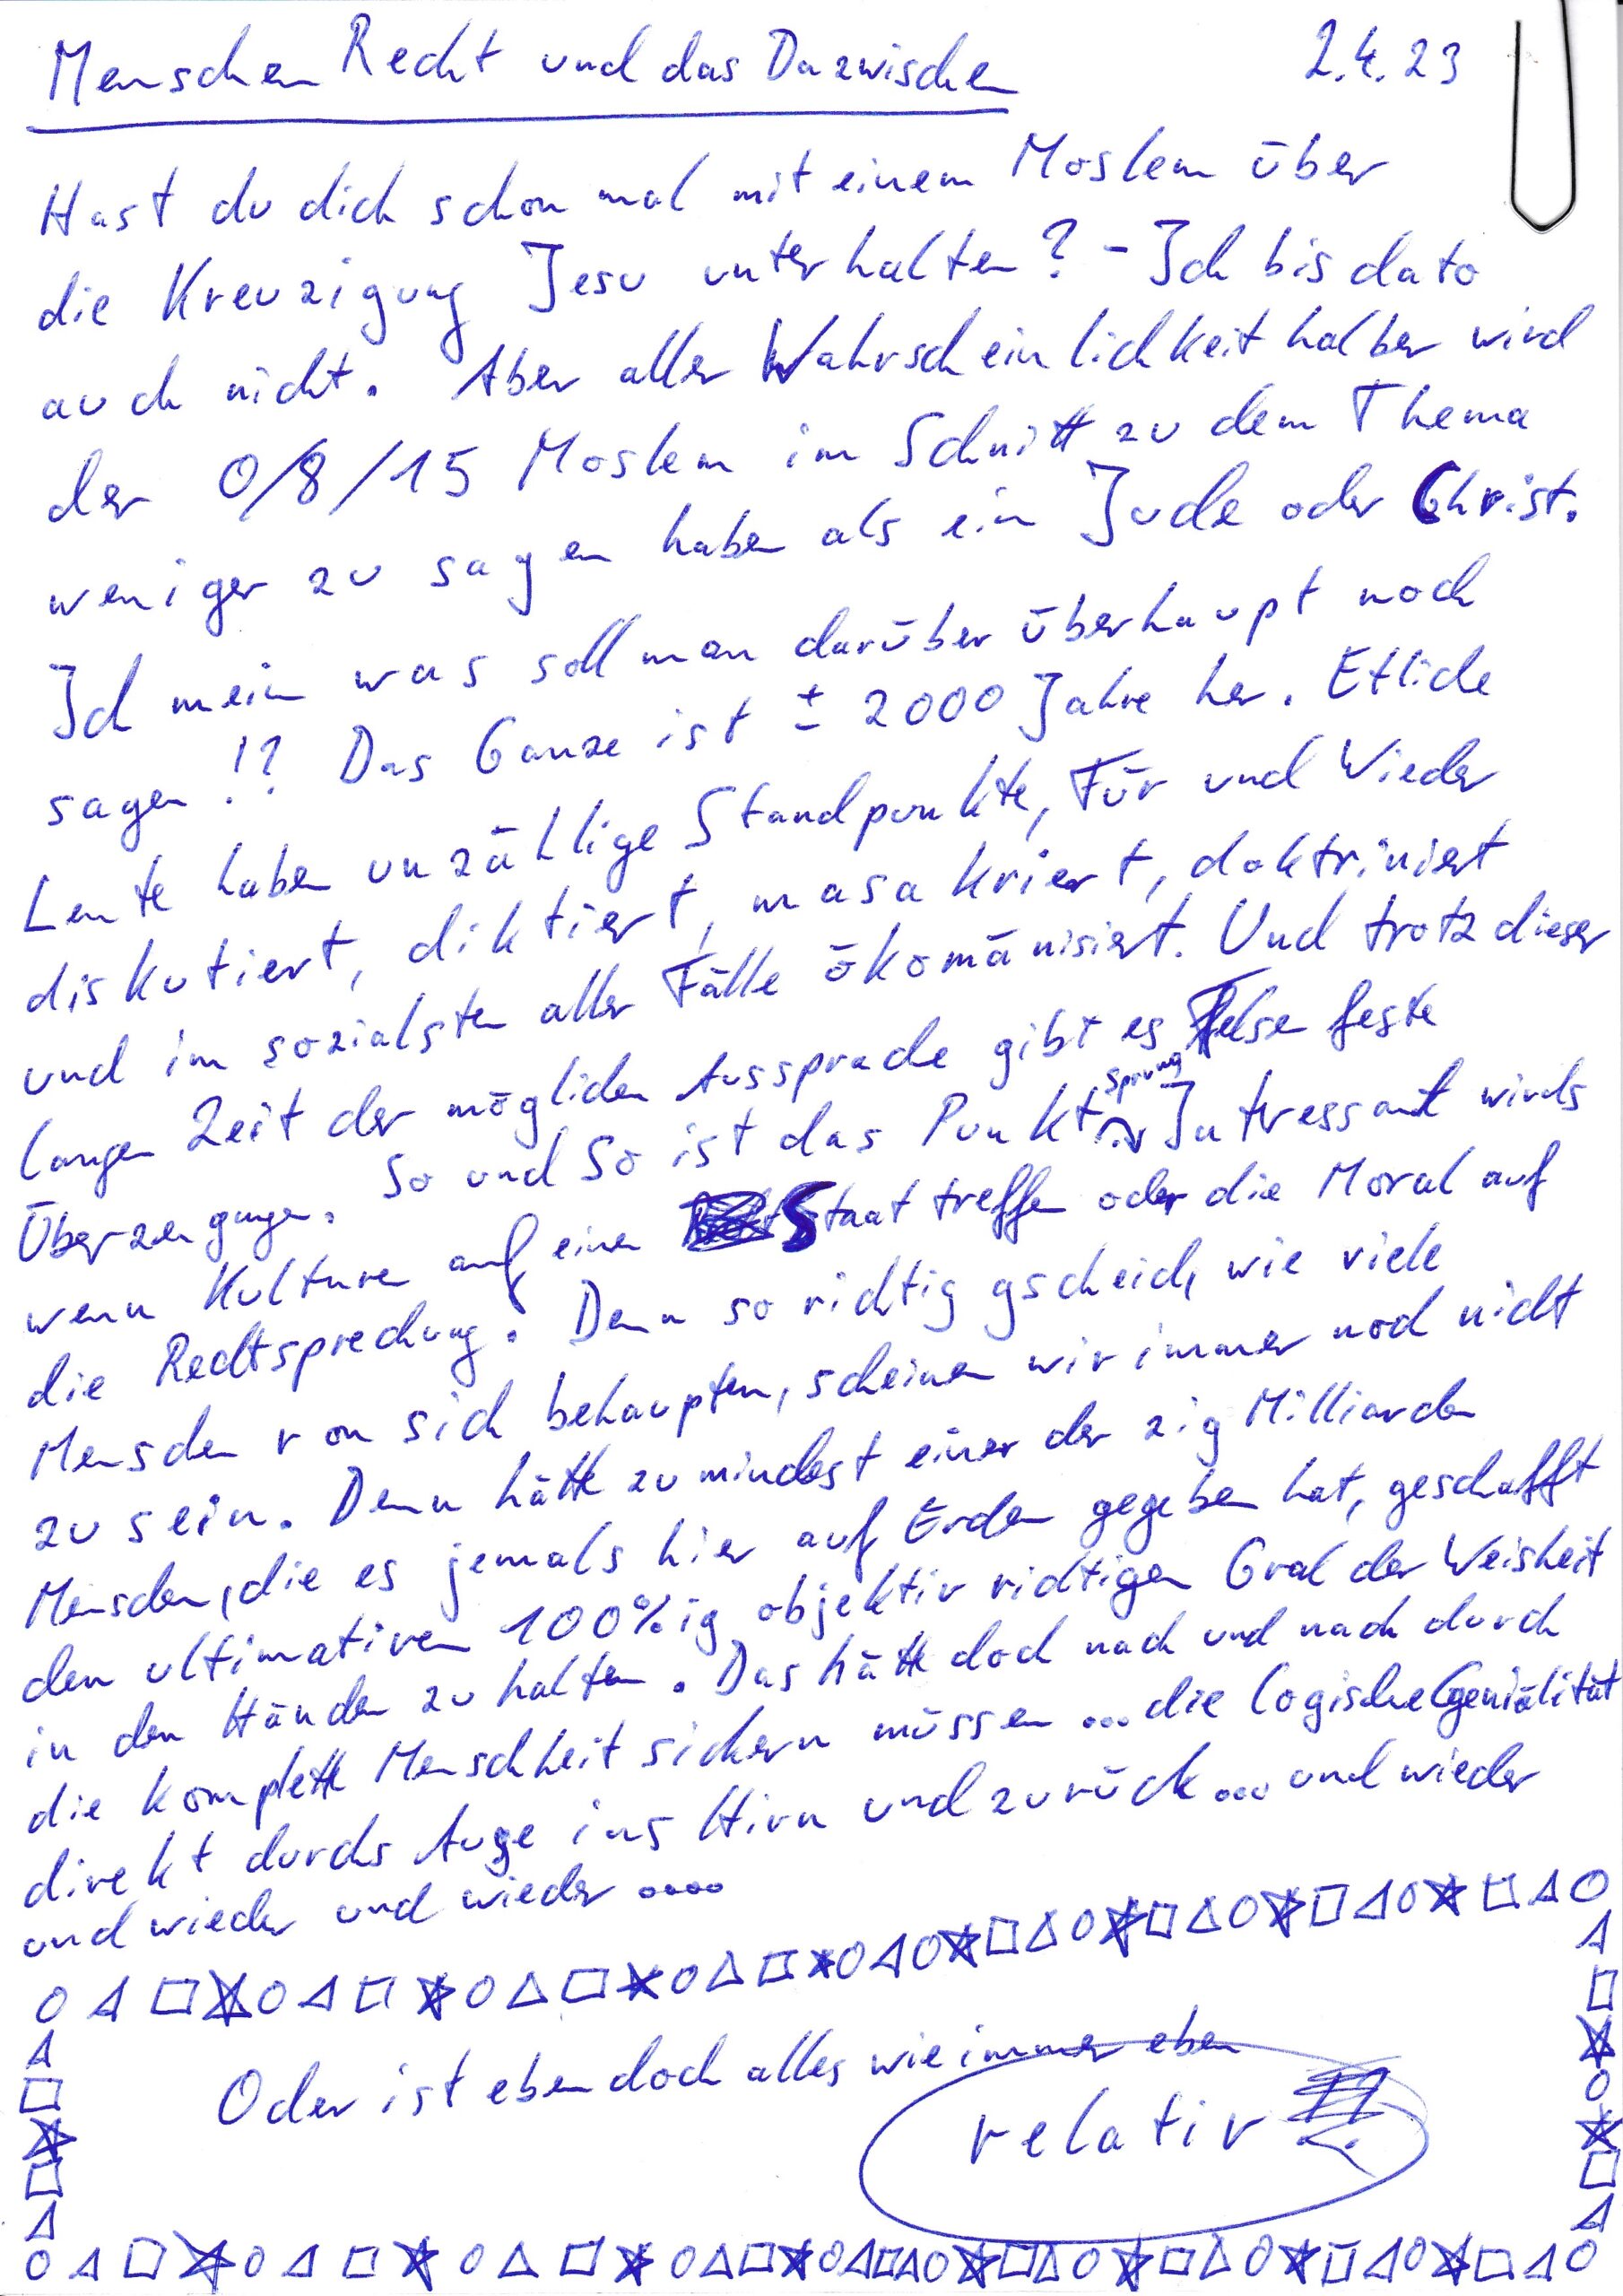 Menschen Recht und das Dazwischen 2.4.23
Hast du dich schon mal mit einem Moslem über
die Kreuzigung Jesu unterhalten? - Ich bis dato
auch nicht. Aber aller Wahrscheinlichkeit halber wird
der 0/8/15 Moslem im Schnitt zu dem Thema
weniger zu sagen haben als ein Jude oder Christ.
Ich mein was soll man darüber überhaupt noch
sagen!? Das Ganze ist ± 2000 Jahre her. Etliche
Leute haben unzählige Standpunkte, Für und Wieder
diskutiert, diktiert, masakriert, doktriniert
und im sozialsten aller Fälle ökomänisiert. Und trotz dieser
langen Zeit der möglichen Aussprache gibt es Felsen feste
Überzeugungen. So und So ist das Punkt. sprung Intressant wirds
wenn Kulturen auf einen Staat treffen oder die Moral auf
die Rechtsprechung. Denn so richtig gscheid, wie viele
Menschen von sich behaupten, scheinen wir immer noch nicht
zu sein. Denn hätte zumindest einer der zig Milliarden
Menschen, die es jemals hier auf Erden gegeben hat, geschafft
den ultimativen 100%ig objektiv richtigen Gral der Weisheit
in den Händen zu halten. Das hätte doch nach und nach durch
die komplette Menschheit sickern müssen ... die logische Genialität
direkt durchs Auge ins Hirn und zurück... und wieder
und wieder und wieder ....
Oder ist eben doch alles wie immer eben
relativ